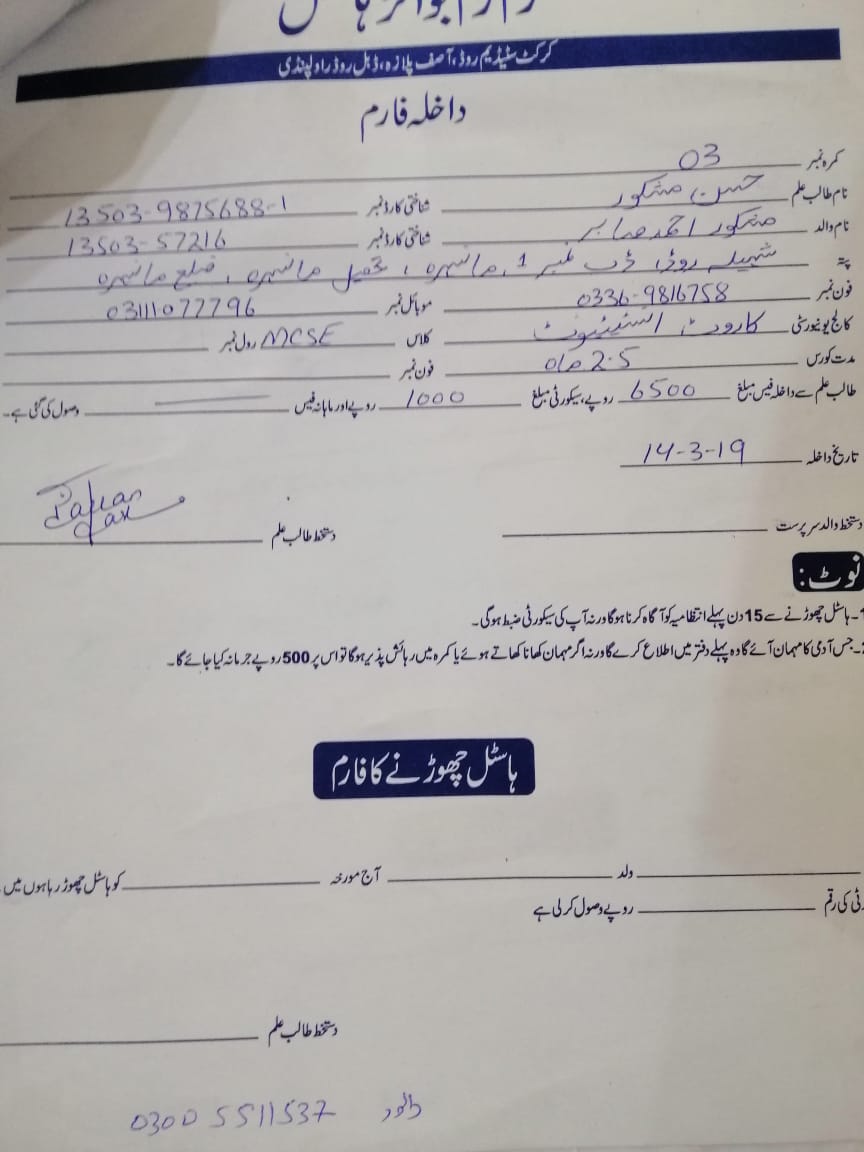 بوائز ہاسٹل
کرکٹ سٹیڈیم روڈ، آصف پلازہ، ڈبل روڈ راولپنڈی
داخلہ فارم
کمرہ نمبر 03
نام طالب علم حسن مشکور شناختی کارڈ نمبر 13503-9875688-1
نام والد مشکور احمد صابر شناختی کارڈ نمبر 13503-57216
پتہ شہیلیہ روڈ، ڈب نمبر 1، مانسہرہ، تحصیل مانسہرہ، ضلع مانسہرہ
فون نمبر 0336-9816758 موبائل نمبر 03111077796
کالج یونیورسٹی انسٹیٹیوٹ کلاس MCSE رول نمبر
مدت کورس 2.5 ماہ فون نمبر
طالب علم سے داخلہ فیس مبلغ 6500 روپے، سیکورٹی مبلغ 1000 روپے اور ماہانہ فیس وصول کی گئی ہے۔
تاریخ داخلہ 14-3-19
دستخط والد سرپرست دستخط طالب علم
نوٹ:
1۔ ہاسٹل چھوڑنے سے 15 دن پہلے انتظامیہ کو آگاہ کرنا ہوگا ورنہ آپ کی سیکورٹی ضبط ہوگی۔
2۔ جس آدمی کا مہمان آئے گا وہ پہلے دفتر میں اطلاع کرے گا ورنہ اگر مہمان کھانا کھاتے ہوئے یا کمرہ میں رہائش پذیر ہوگا تو اس پر 500 روپے جرمانہ کیا جائے گا۔
ہاسٹل چھوڑنے کا فارم
ولد آج مورخہ کو ہاسٹل چھوڑ رہا ہوں میں
رٹی کی رقم روپے وصول کر لی ہے
دستخط طالب علم
0300 5511537